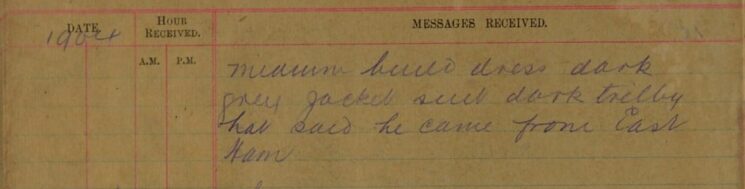 DATE.
HOUR RECEIVED.
MESSAGES RECEIVED.
A.M. P.M.
medium build dress dark
grey jacket suit dark trilby
hat said he came from East
Ham